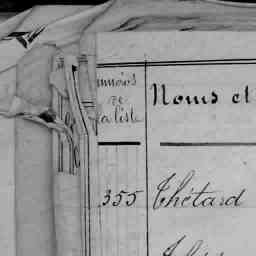 numéros
de
la liste
Noms et
355 Thétard